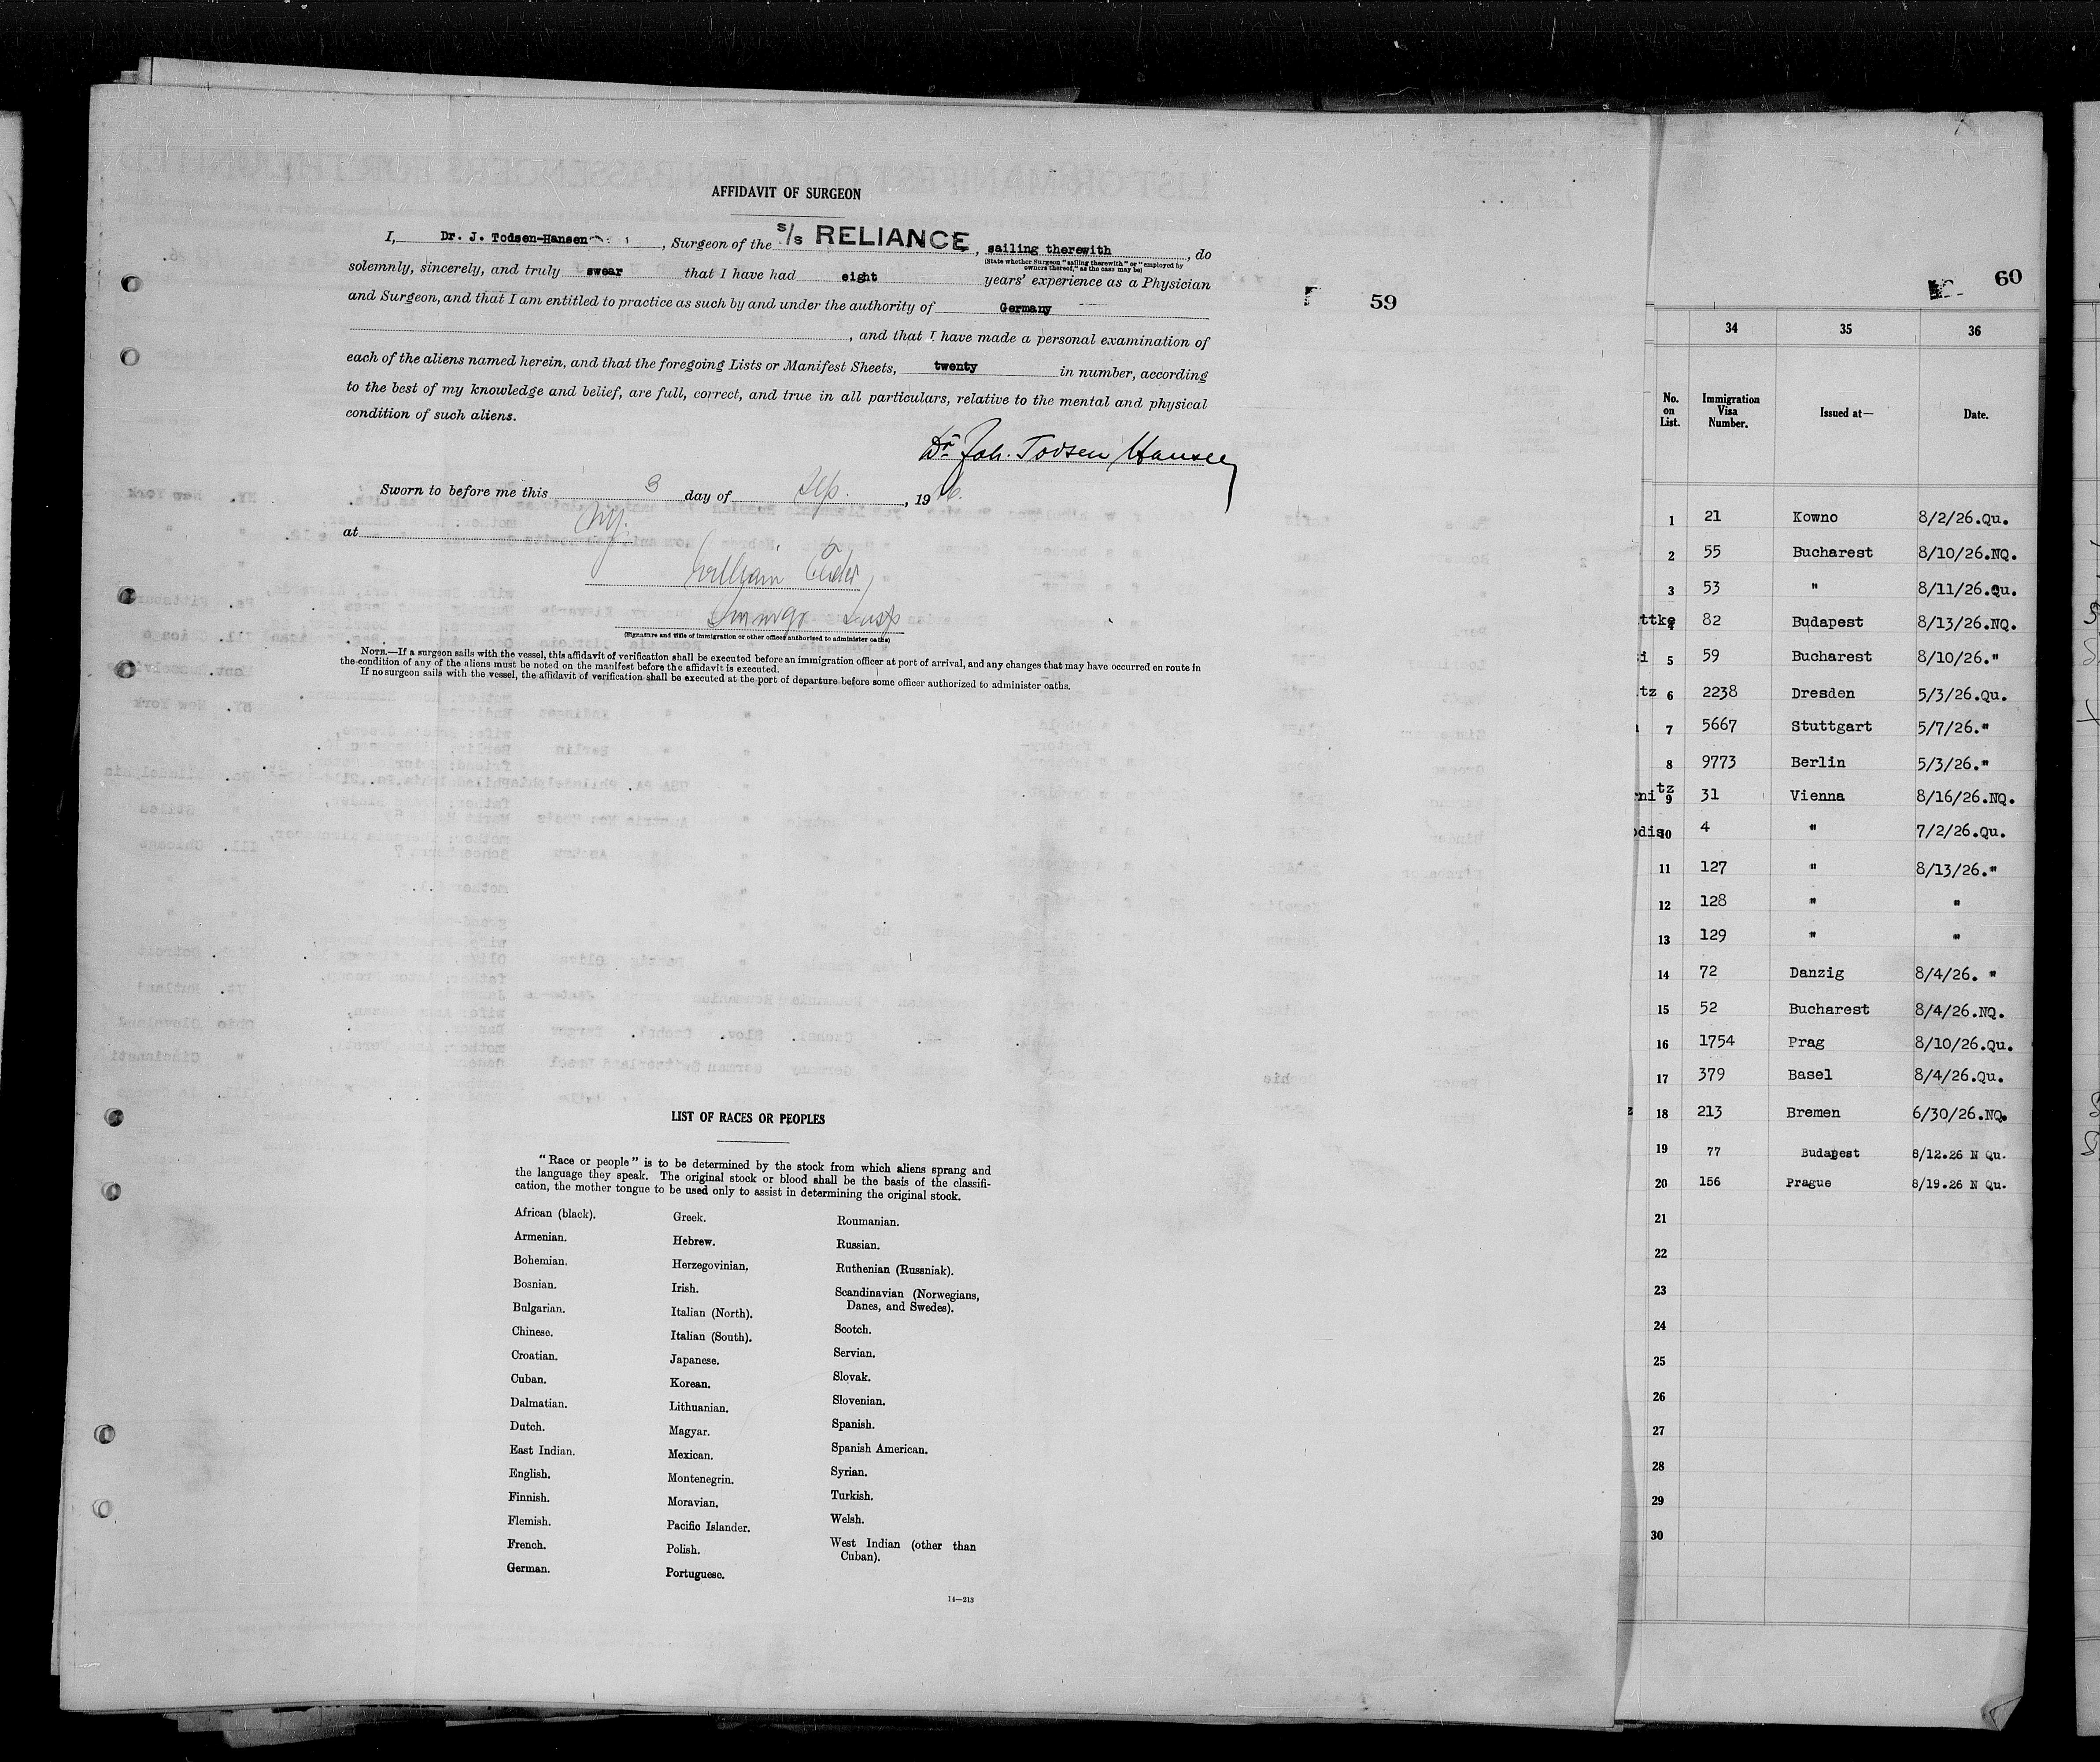 AFFIDAVIT OF SURGEON
I, Dr. J. Todsen-Hansen, Surgeon of the S/S RELIANCE, sailing therewith, do
(State whether Surgeon "sailing therewith" or "employed by
owners thereof," as the case may be)
solemnly, sincerely, and truly swear that I have had eight years' experience as a Physician
and Surgeon, and that I am entitled to practice as such by and under the authority of Germany
, and that I have made a personal examination of
each of the aliens named herein, and that the foregoing Lists or Manifest Sheets, twenty in number, according
to the best of my knowledge and belief, are full, correct, and true in all particulars, relative to the mental and physical
condition of such aliens.
Dr. Joh. Todsen Hansen
Sworn to before me this 3 day of Sep., 1926.
at NY.
William
Immigr Insp
(Signature and title of immigration or other officer authorized to administer oaths)
NOTE.—If a surgeon sails with the vessel, this affidavit of verification shall be executed before an immigration officer at port of arrival, and any changes that may have occurred en route in
the condition of any of the aliens must be noted on the manifest before the affidavit is executed.
If no surgeon sails with the vessel, the affidavit of verification shall be executed at the port of departure before some officer authorized to administer oaths.
59
LIST OF RACES OR PEOPLES
"Race or people" is to be determined by the stock from which aliens sprang and
the language they speak. The original stock or blood shall be the basis of the classifi-
cation, the mother tongue to be used only to assist in determining the original stock.
African (black).
Armenian.
Bohemian.
Bosnian.
Bulgarian.
Chinese.
Croatian.
Cuban.
Dalmatian.
Dutch.
East Indian.
English.
Finnish.
Flemish.
French.
German.
Greek.
Hebrew.
Herzegovinian.
Irish.
Italian (North).
Italian (South).
Japanese.
Korean.
Lithuanian.
Magyar.
Mexican.
Montenegrin.
Moravian.
Pacific Islander.
Polish.
Portuguese.
Roumanian.
Russian.
Ruthenian (Russniak).
Scandinavian (Norwegians,
Danes, and Swedes).
Scotch.
Servian.
Slovak.
Slovenian.
Spanish.
Spanish American.
Syrian.
Turkish.
Welsh.
West Indian (other than
Cuban).
14—213
60
34 35 36
No. on List. Immigration Visa Number. Issued at— Date.
1 21 Kowno 8/2/26.Qu.
2 55 Bucharest 8/10/26.NQ.
3 53 " 8/11/26.Qu.
ttke 4 82 Budapest 8/13/26.NQ.
i 5 59 Bucharest 8/10/26."
tz 6 2238 Dresden 5/3/26.Qu.
7 5667 Stuttgart 5/7/26."
8 9773 Berlin 5/3/26."
rnitz 9 31 Vienna 8/16/26.NQ.
odis 10 4 " 7/2/26.Qu.
11 127 " 8/13/26."
12 128 " "
13 129 " "
14 72 Danzig 8/4/26. "
15 52 Bucharest 8/4/26.NQ.
16 1754 Prag 8/10/26.Qu.
17 379 Basel 8/4/26.Qu.
z 18 213 Bremen 6/30/26.NQ.
19 77 Budapest 8/12.26 N Qu.
20 156 Prague 8/19.26 N Qu.
21
22
23
24
25
26
27
28
29
30